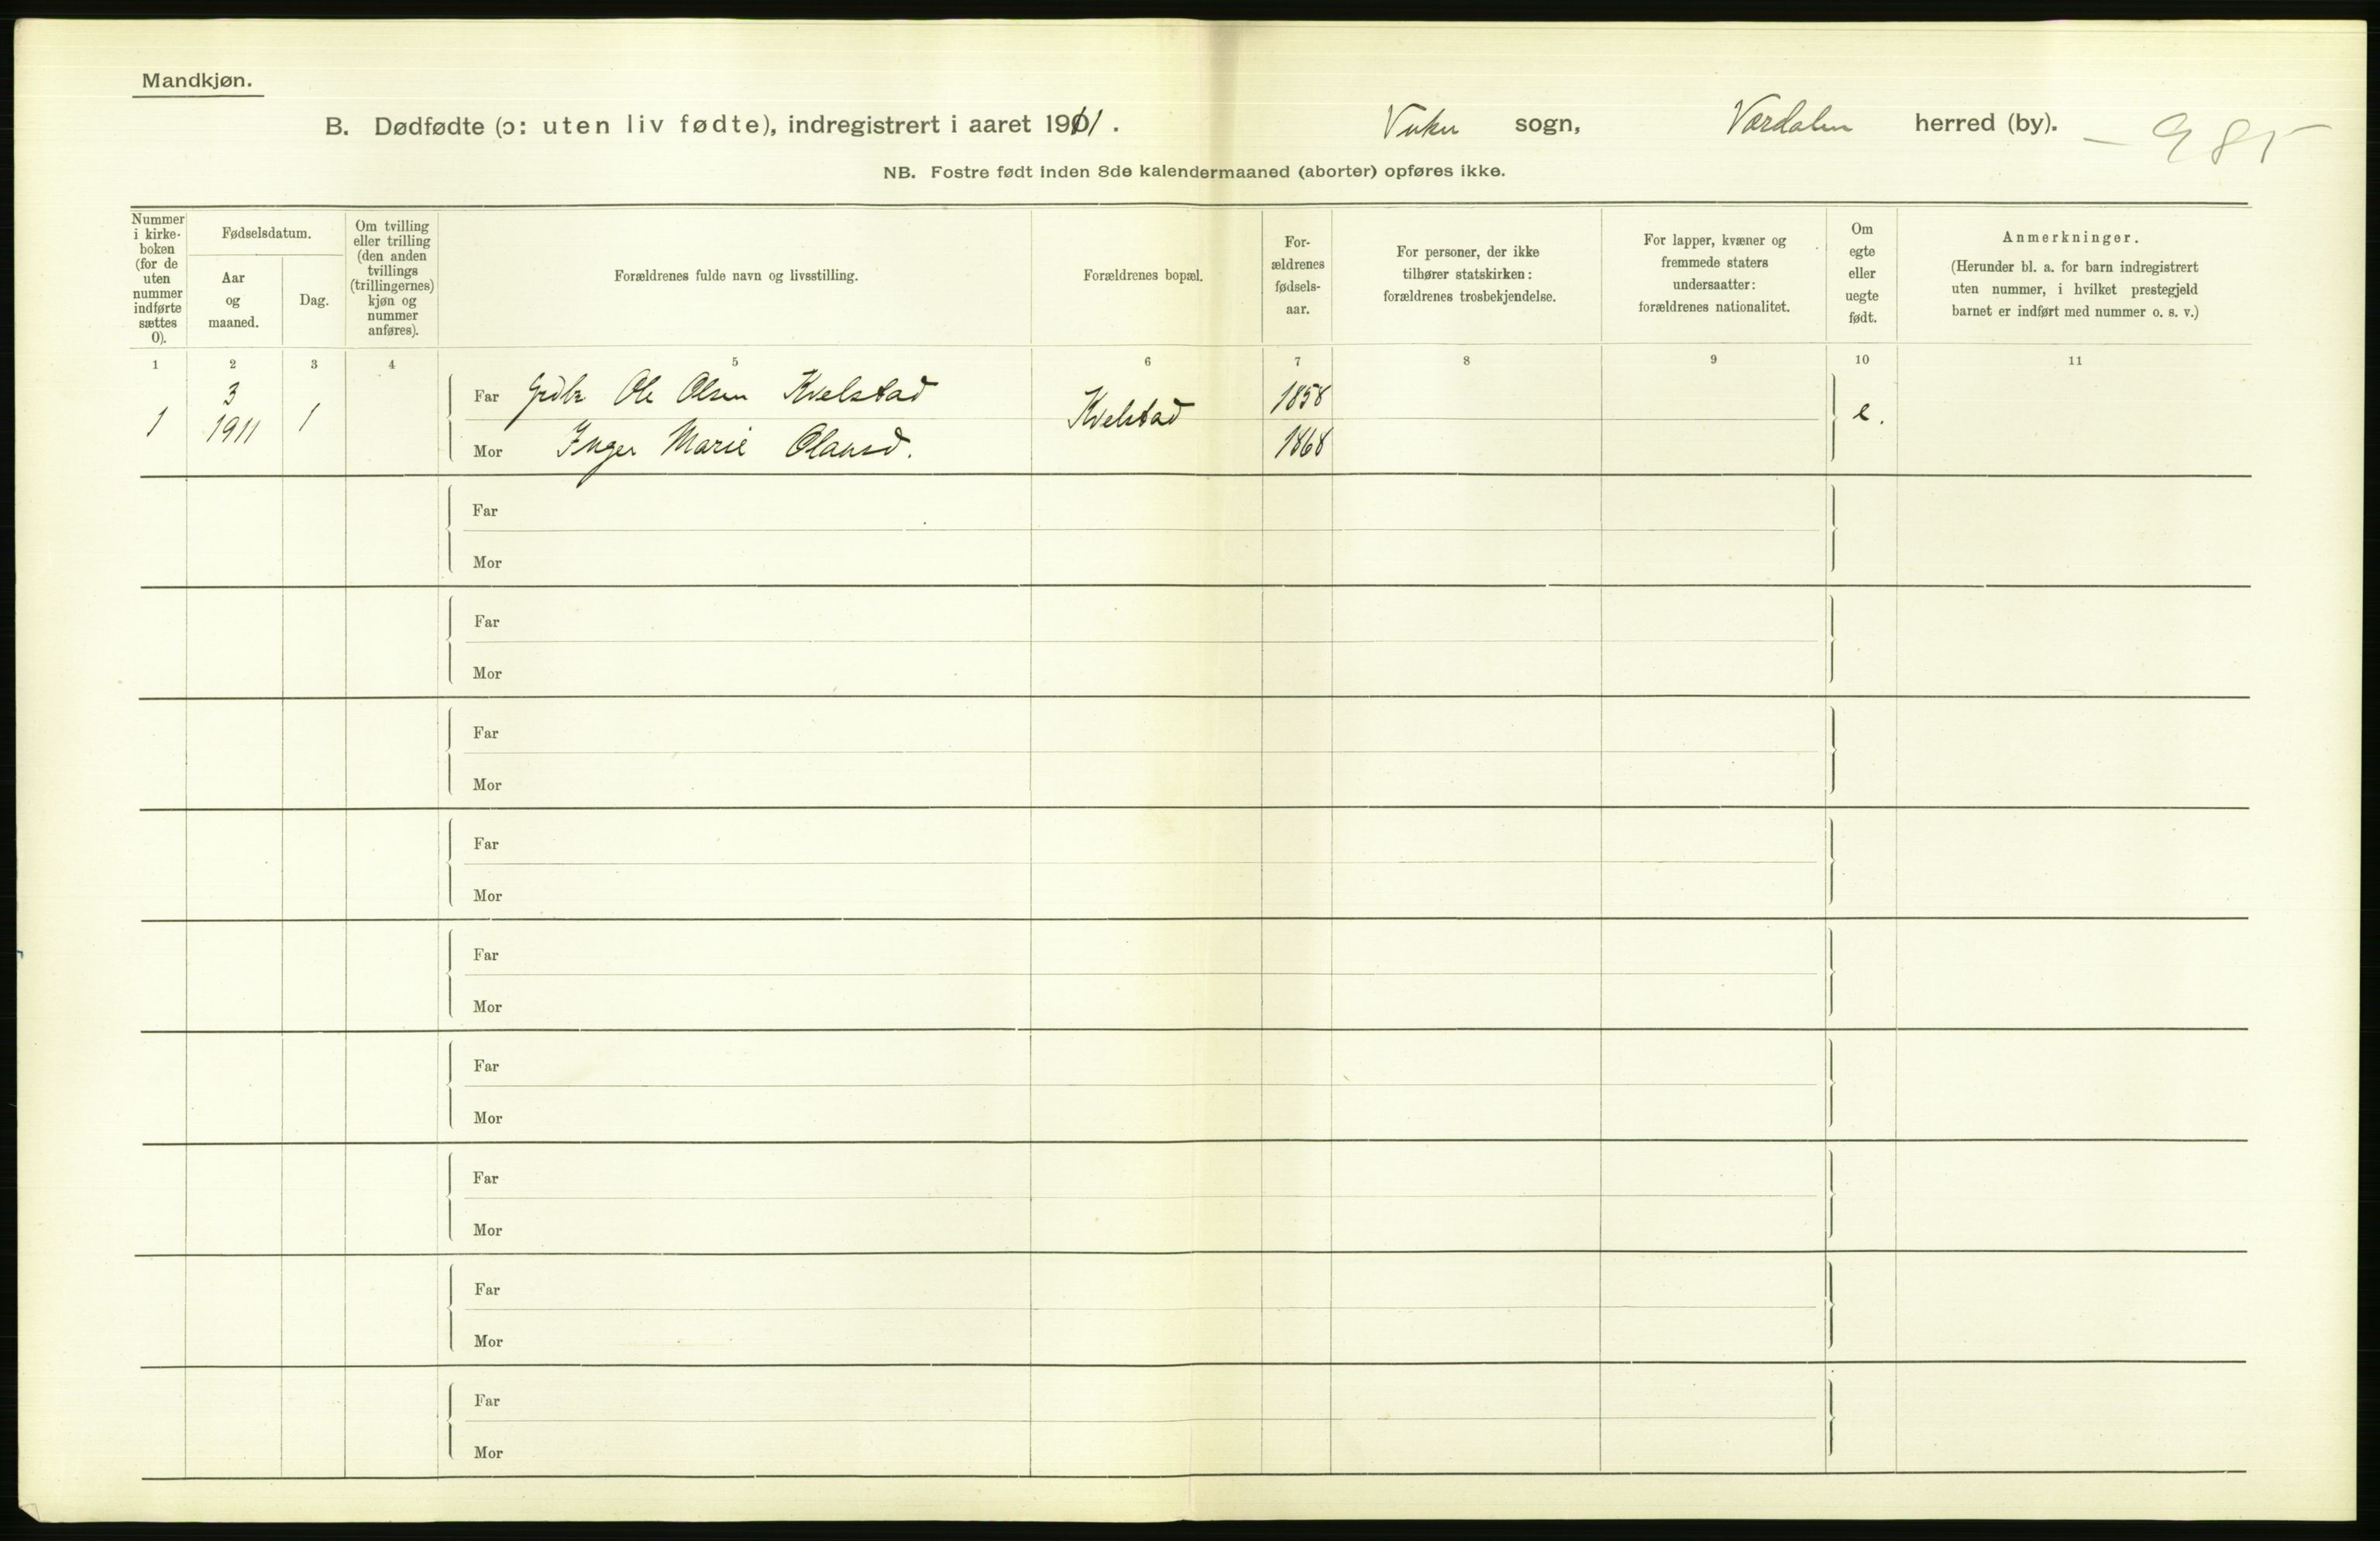 Mandkjøn.
B. Dødfødte (ɔ: uten liv fødte), indregistrert i aaret 1911. Vuku sogn, Værdalen herred (by). — 985
NB. Fostre født inden 8de kalendermaaned (aborter) opføres ikke.
Nummer i kirke-boken (for de uten nummer indførte sættes 0).
Fødselsdatum.
Aar og maaned.
Dag.
Om tvilling eller trilling (den anden tvillings (trillingernes) kjøn og nummer anføres).
Forældrenes fulde navn og livsstilling.
Forældrenes bopæl.
For-ældrenes fødsels-aar.
For personer, der ikke tilhører statskirken: forældrenes trosbekjendelse.
For lapper, kvæner og fremmede staters undersaatter: forældrenes nationalitet.
Om egte eller uegte født.
Anmerkninger.
(Herunder bl. a. for barn indregistrert uten nummer, i hvilket prestegjeld barnet er indført med nummer o. s. v.)
1 2 3 4 5 6 7 8 9 10 11
1 3 1911 1 Far Ole Olsen Kvelstad Kvelstad 1858 e.
Mor Inger Marie Olausd. 1868
Far
Mor
Far
Mor
Far
Mor
Far
Mor
Far
Mor
Far
Mor
Far
Mor
Far
Mor
Far
Mor